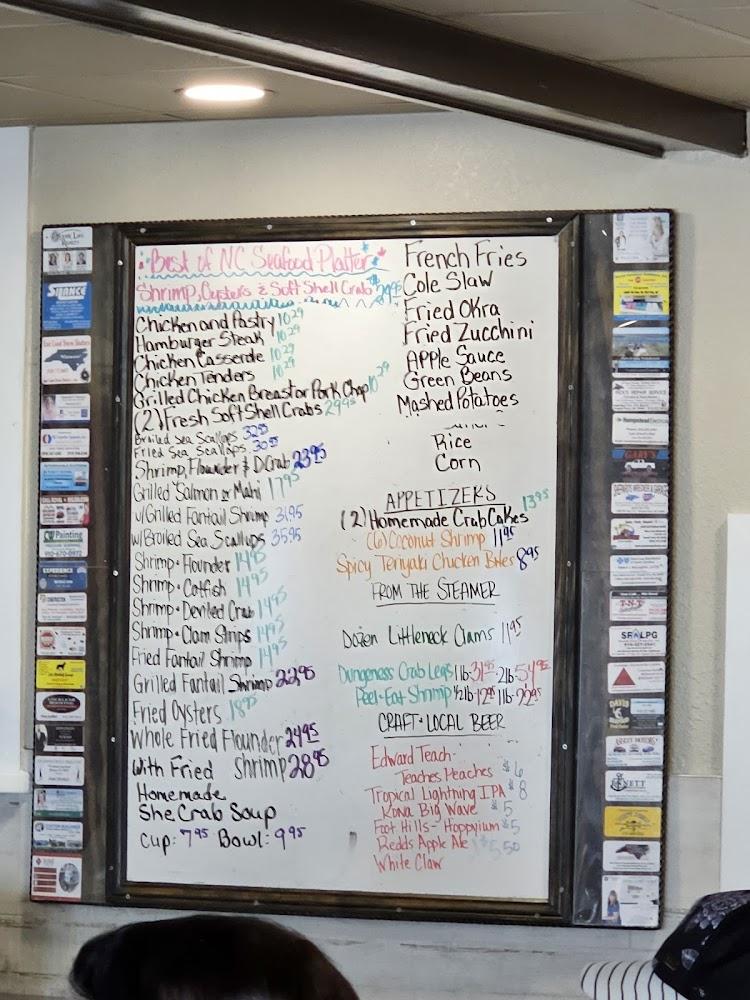 Best of NC Seafood Platter
Shrimp, Oysters & Soft Shell Crab
Chicken and Pastry 10.29
Hamburger Steak 10.29
Chicken Casserole 10.29
Chicken Tenders 10.29
Grilled Chicken Breast or Pork Chop 10.29
(2) Fresh Soft Shell Crabs 29.95
Broiled Sea Scallops 32.95
Fried Sea Scallops 30.95
Shrimp, Flounder & D Crab 23.95
Grilled Salmon or Mahi 17.95
w/Grilled Fantail Shrimp 31.95
w/Broiled Sea Scallops 35.95
Shrimp • Flounder 14.95
Shrimp • Catfish 14.95
Shrimp • Deviled Crab 14.95
Shrimp • Clam Strips 14.95
Fried Fantail Shrimp 14.95
Grilled Fantail Shrimp 22.95
Fried Oysters 18.95
Whole Fried Flounder 24.95
With Fried Shrimp 28.95
Homemade
She Crab Soup
Cup: 7.95 Bowl: 9.95
French Fries
Cole Slaw
Fried Okra
Fried Zucchini
Apple Sauce
Green Beans
Mashed Potatoes
Rice
Corn
APPETIZERS
(2) Homemade Crab Cakes 13.95
(6) Coconut Shrimp 11.95
Spicy Teriyaki Chicken Bites 8.95
FROM THE STEAMER
Dozen Littleneck Clams 11.95
Dungeness Crab Legs 1 lb-31.95 • 2 lb-54.95
Peel • Eat Shrimp ½ lb-12.95 1 lb-22.95
CRAFT • LOCAL BEER
Edward Teach-
Teaches Peaches $6
Tropical Lightning IPA $8
Kona Big Wave $5
Foot Hills - Hoppyium $5
Redds Apple Ale $5.50
White Claw
SEANCE
CW Painting
910-670-0972
EXPERIENCE
GARY'S
T-N-T
SR LPG
DAVIS